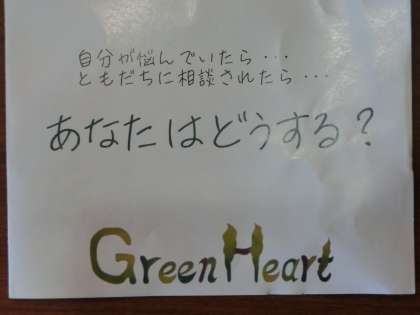 自分が悩んでいたら・・・
ともだちに相談されたら・・・
あなたはどうする？
GreenHeart